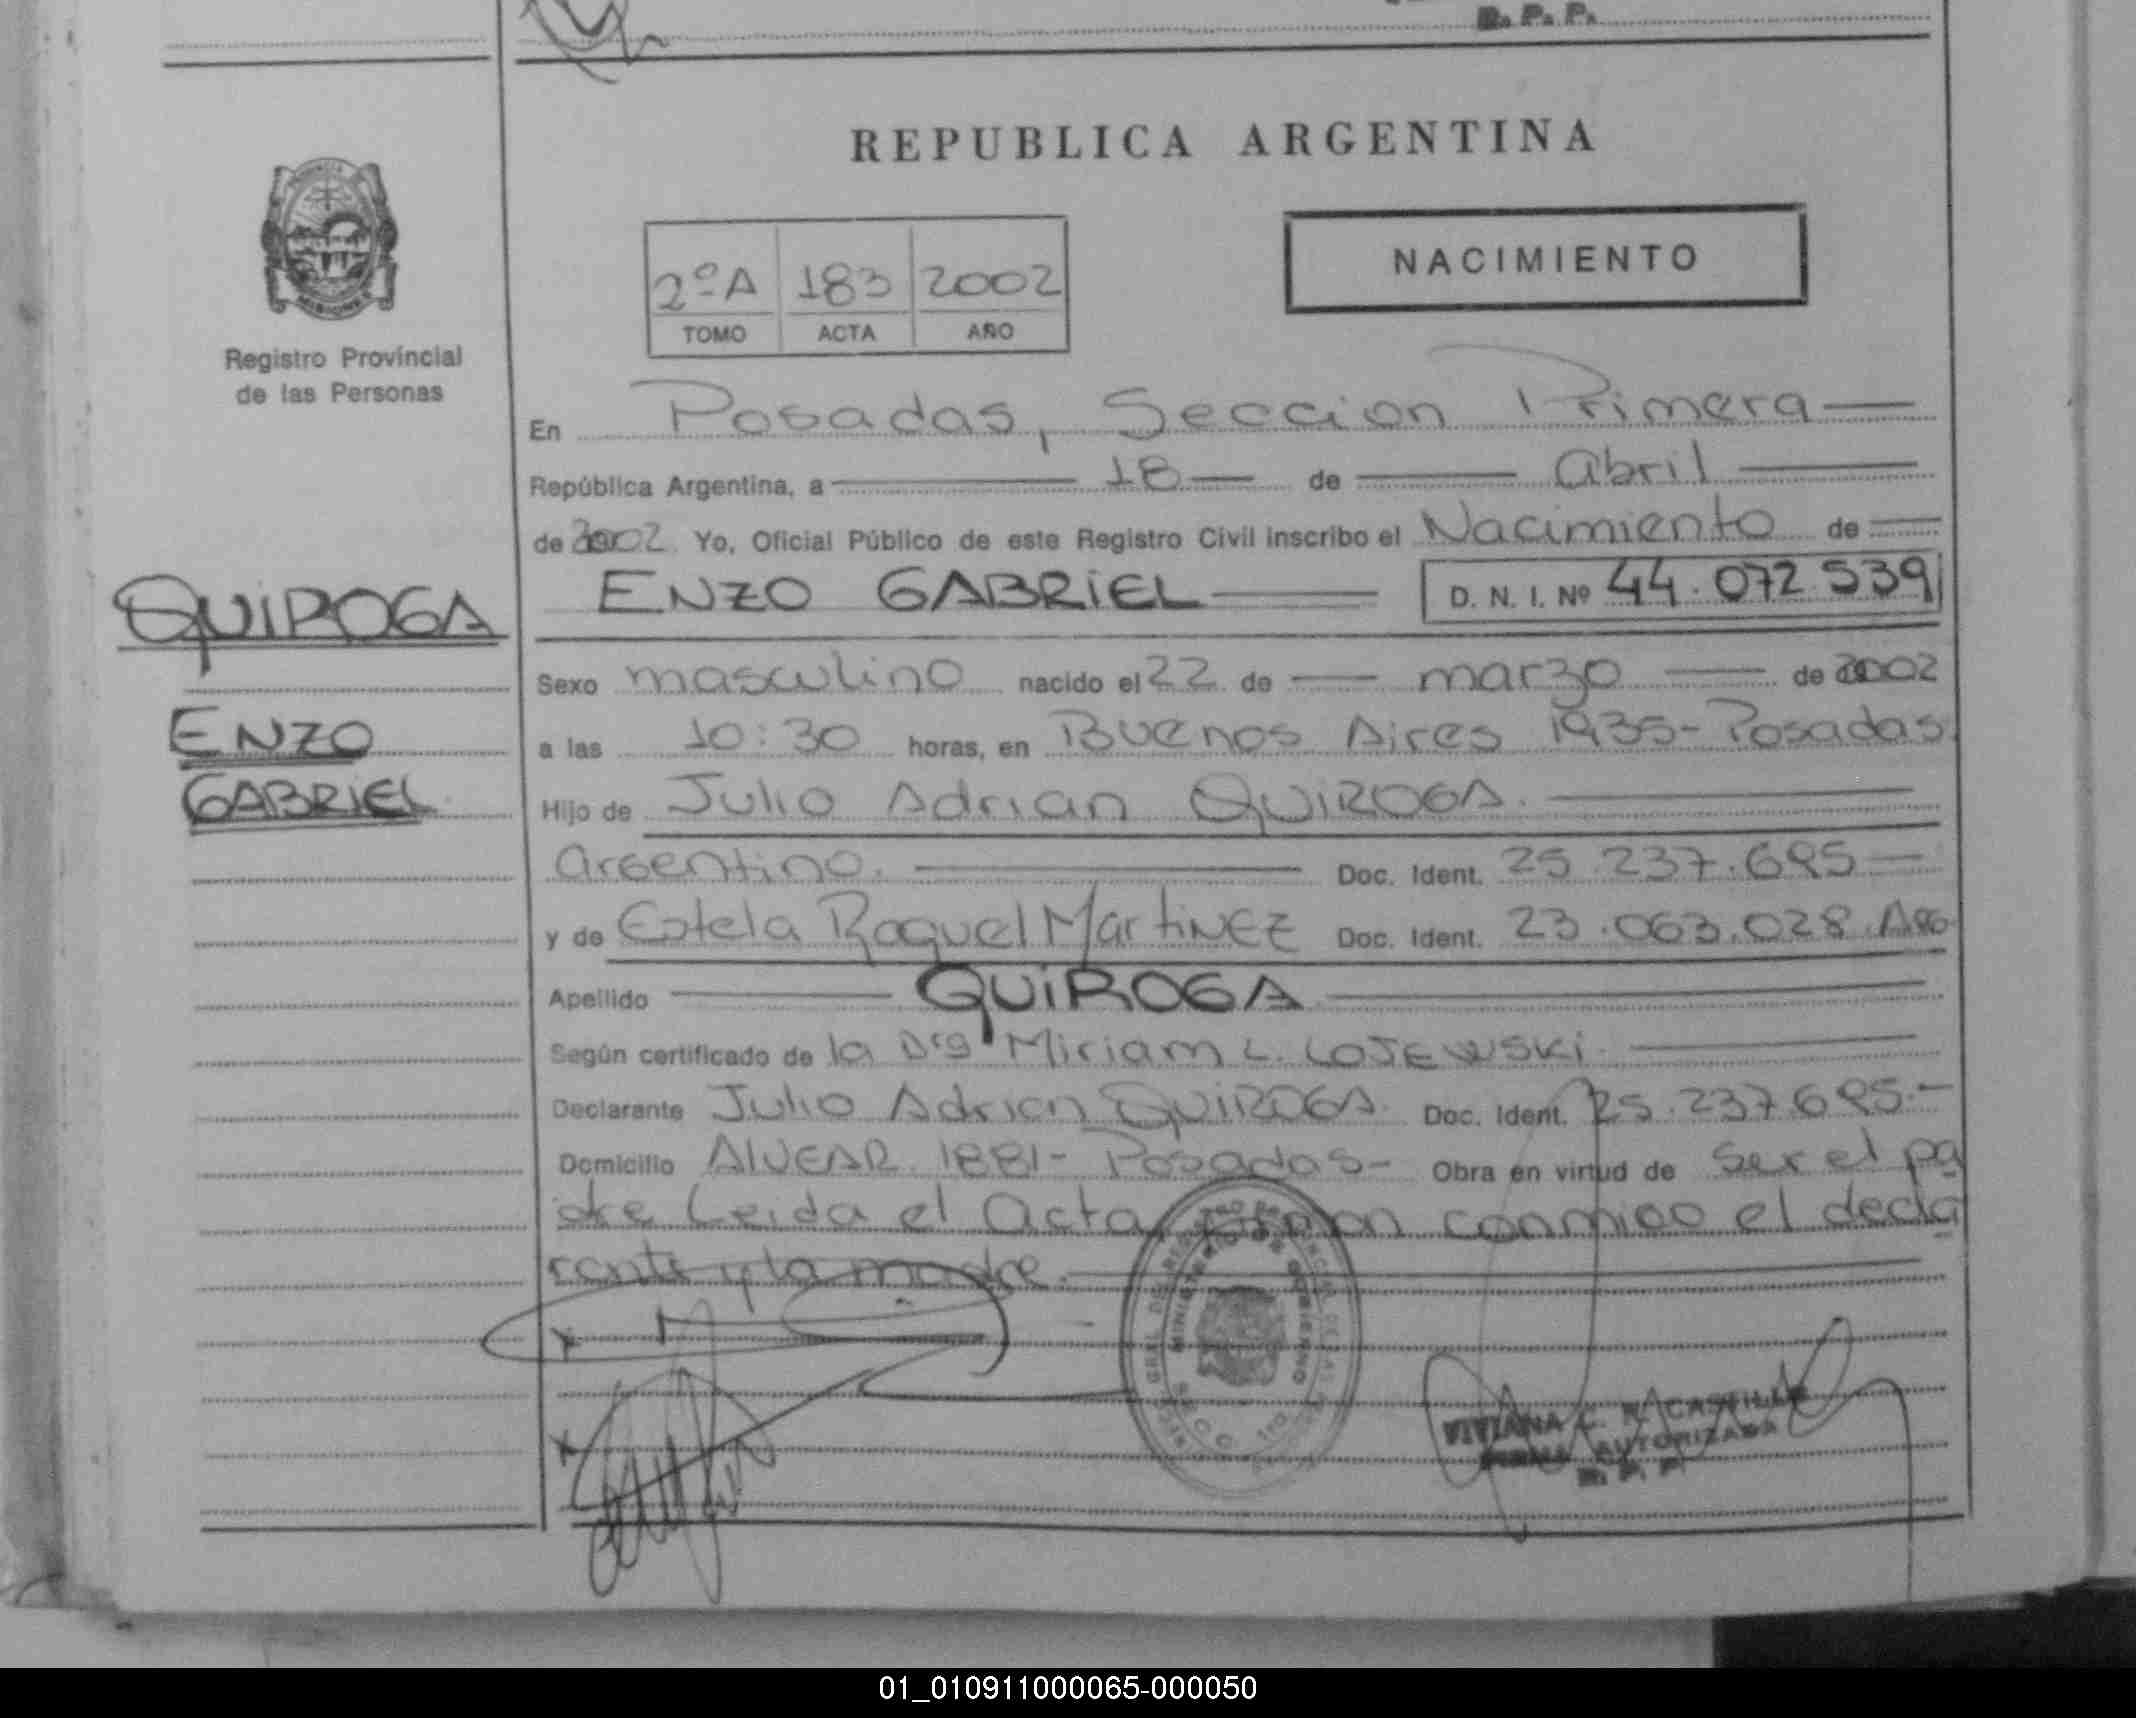 R. P. P.
REPUBLICA ARGENTINA
NACIMIENTO
2º A 183 2002
TOMO ACTA AÑO
Registro Provincial
de las Personas
En Posadas, Seccion Primera
República Argentina, a 18 de abril
de 2002 Yo, Oficial Público de este Registro Civil inscribo el Nacimiento de
QUIROGA
ENZO GABRIEL D. N. I. Nº 44.072.539
Sexo masculino nacido el 22 de marzo de 2002
ENZO
a las 10:30 horas, en Buenos Aires 1935-Posadas.
GABRIEL
Hijo de Julio Adrian QUIROGA.
argentino. Doc. Ident. 25.237.695
y de Estela Raquel MartiNEZ Doc. Ident. 23.063.028. Arg.
Apellido QUIROGA
Según certificado de la Drª Miriam L. LOJEWSKi.
Declarante Julio Adrian QUIROGA. Doc. Ident. 25.237.695.-
Domicilio ALVEAR 1881- Posadas- Obra en virtud de ser el pa
dre Leida el Acta, firman conmigo el decla
rante y la madre.
x
x
MINISTERIO DE GOBIERNO
VIVIANA C. R. CASTILLO
FIRMA AUTORIZADA
R. P. P.
01_010911000065-000050